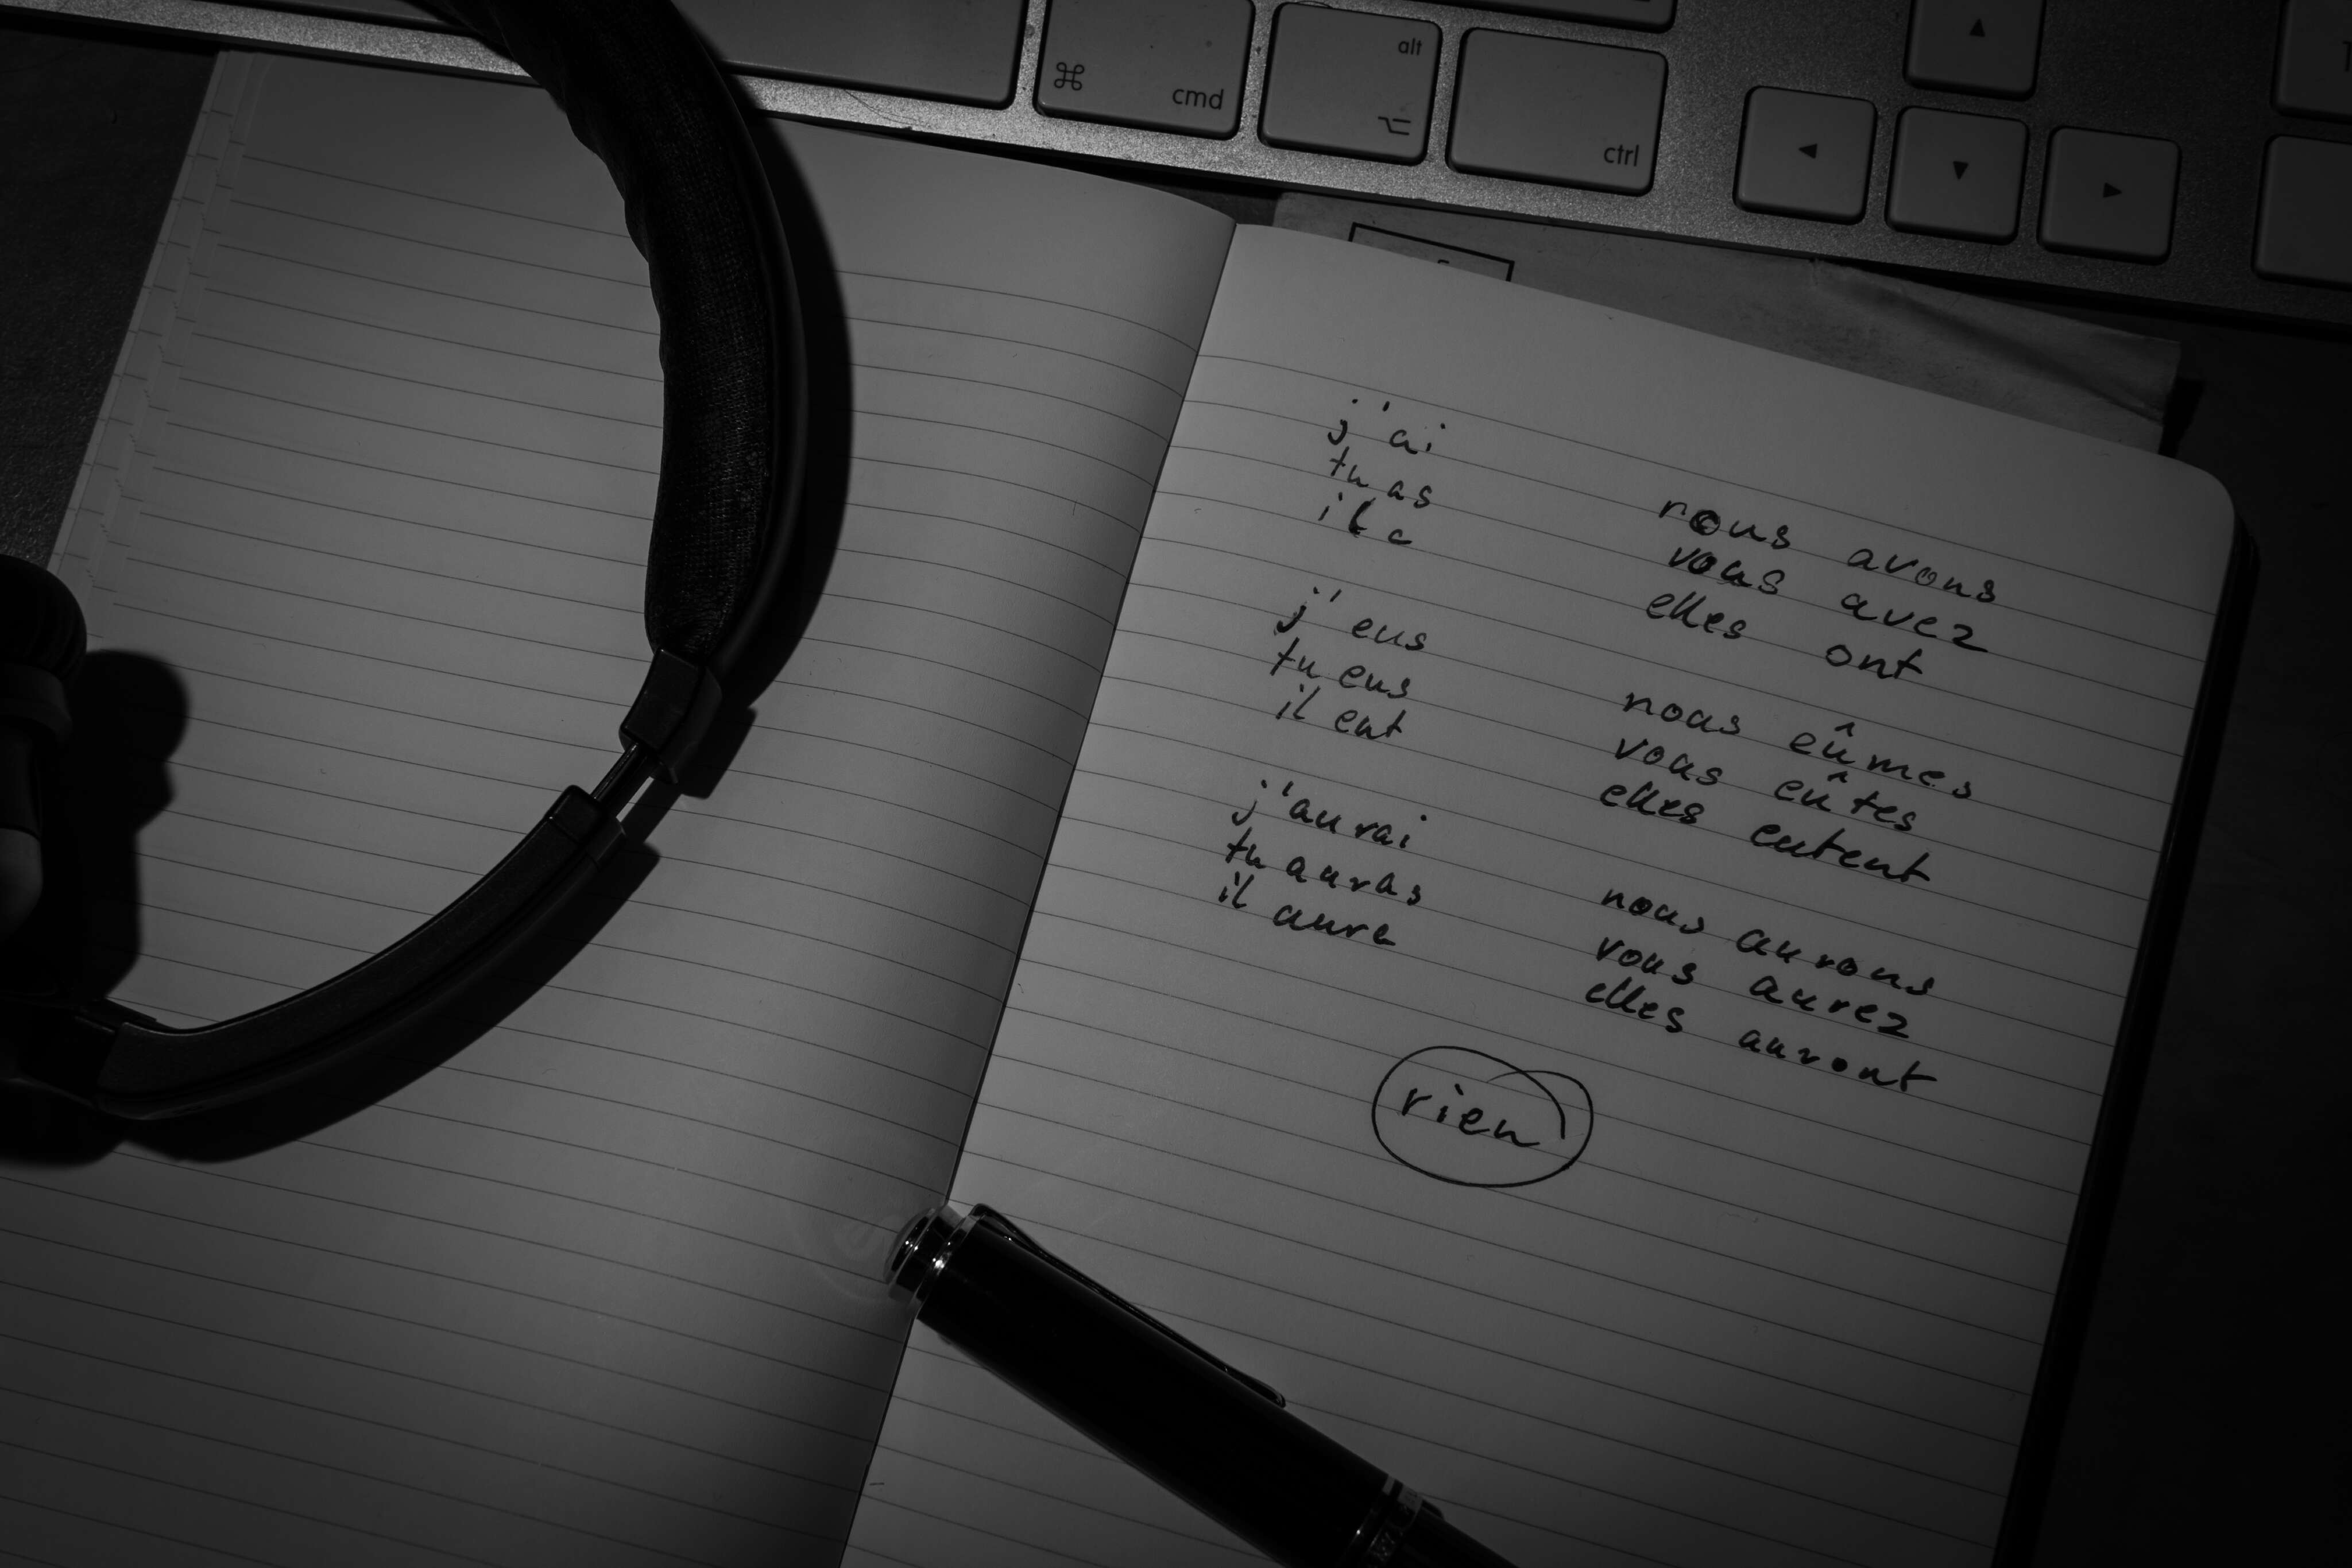 ⌘ cmd
alt
⌥
ctrl
▲
◄ ▼ ►
j'ai
tu as
il a
nous avons
vous avez
elles ont
j'eus
tu eus
il eut
nous eûmes
vous eûtes
elles eutent
j'aurai
tu auras
il aura
nous aurons
vous aurez
elles auront
rien